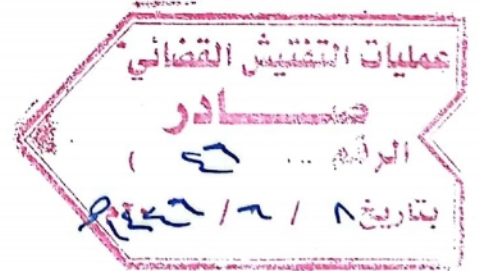 عمليات التفتيش القضائي
صادر
الرقم ( ٤٦ )
بتاريخ ٨ / ٦ /